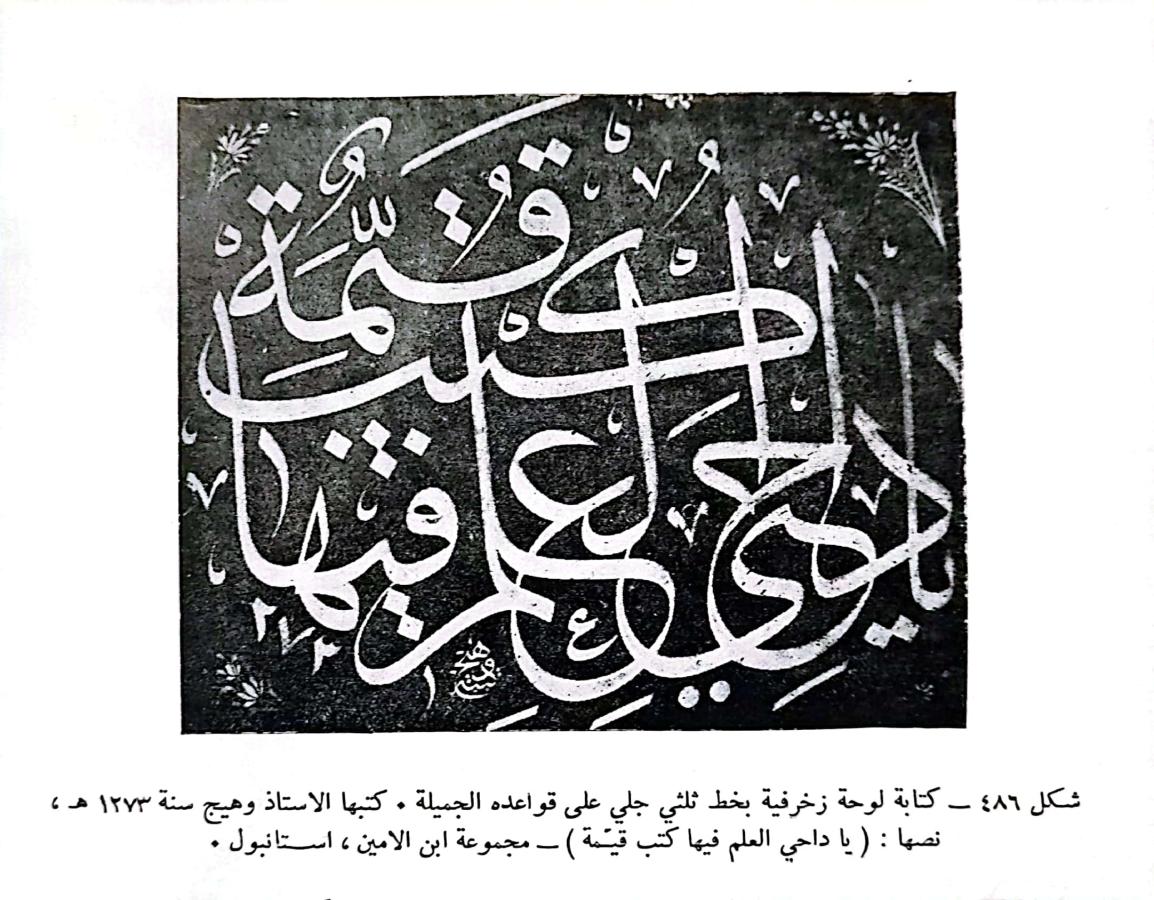 يا داحي العلم فيها كتب قيّمة
١٢٧٣
شكل ٤٨٦ ــ كتابة لوحة زخرفية بخط ثلثي جلي على قواعده الجميلة ٠ كتبها الاستاذ وهيج سنة ١٢٧٣ هـ ،
نصها : ( يا داحي العلم فيها كتب قيّمة ) ــ مجموعة ابن الامين ، استانبول ٠